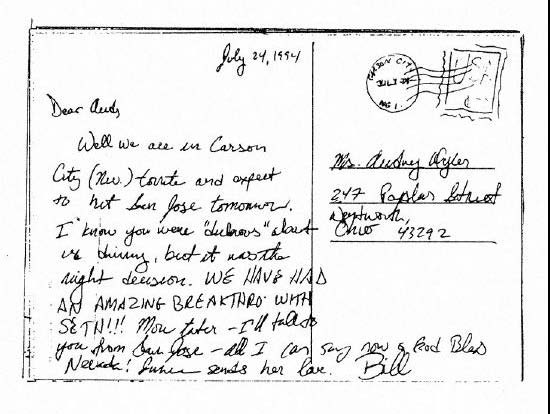 July 24, 1994
Dear Aud,
Well we are in Carson
City (Nev.) tonite and expect
to hit San Jose tomorrow.
I know you were "dubious" about
us driving, but it was the
right decision. WE HAVE HAD
AN AMAZING BREAKTHRO' WITH
SETH!!! More later - I'll talk to
you from San Jose - all I can say now is God Bless
Nevada! sends her love. Bill
CARSON CITY
USA
Ms. Audrey Wyler
247 Poplar Street
Wentworth,
Ohio 43292